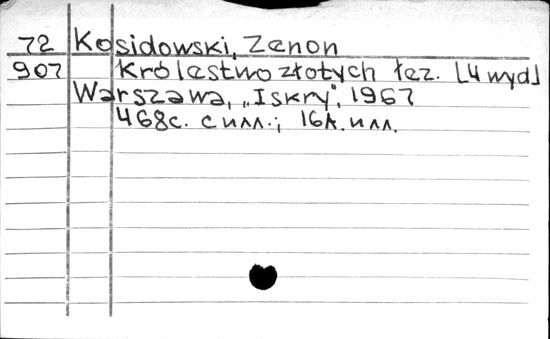 72 Kosidowski, Zenon
907 Królestwo złotych łez. [4 wyd]
Warszawa, „Iskry”, 1967
468с. с илл.; 16л. илл.